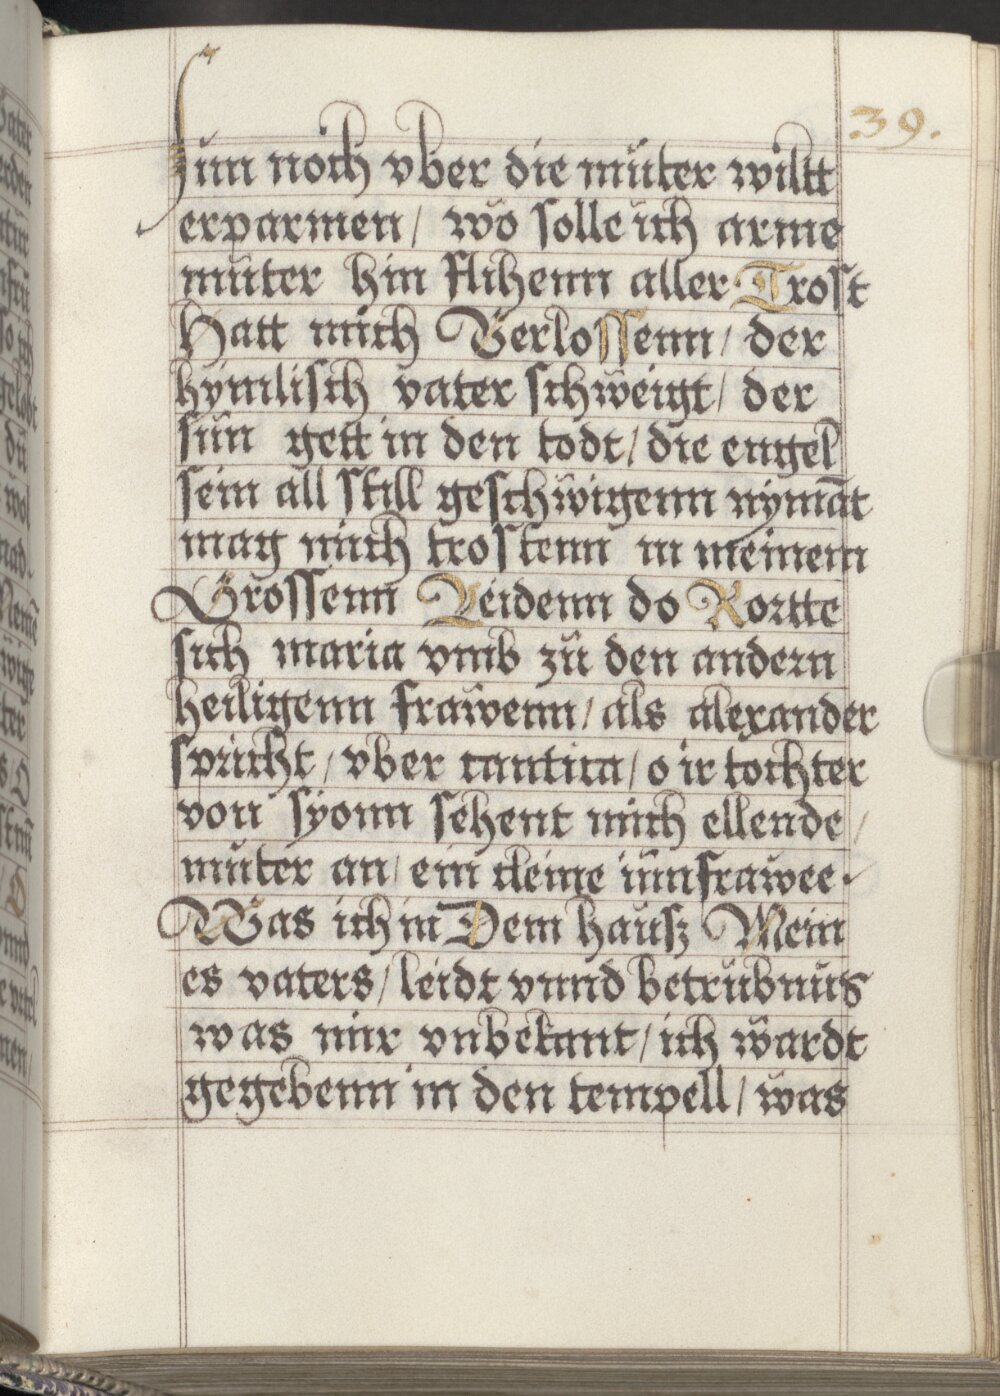 39.
sun noch vber die müter wiltt
erparmen / wo solle ich arme
müter hin flihenn aller Trost
Hatt mich Verlossenn / der
hymlisch vater schweigt / der
sün gett in den todt / die engel
sein all still geschwigenn nymāt
mag mich trostenn in meinem
Grossenn Leidenn do Kortte
sich maria vmb zü den andern
heiligenn frawenn / als alexander
spricht / vber cantica / o ir tochter
von syonn sehent mich ellende /
müter an / ein cleine iünfrawe
Was ich in Dem hausz Mein
es vaters / leidt vnnd betrübnüs
was mir vnbekant / ich wardt
gegebenn in den tempell / was